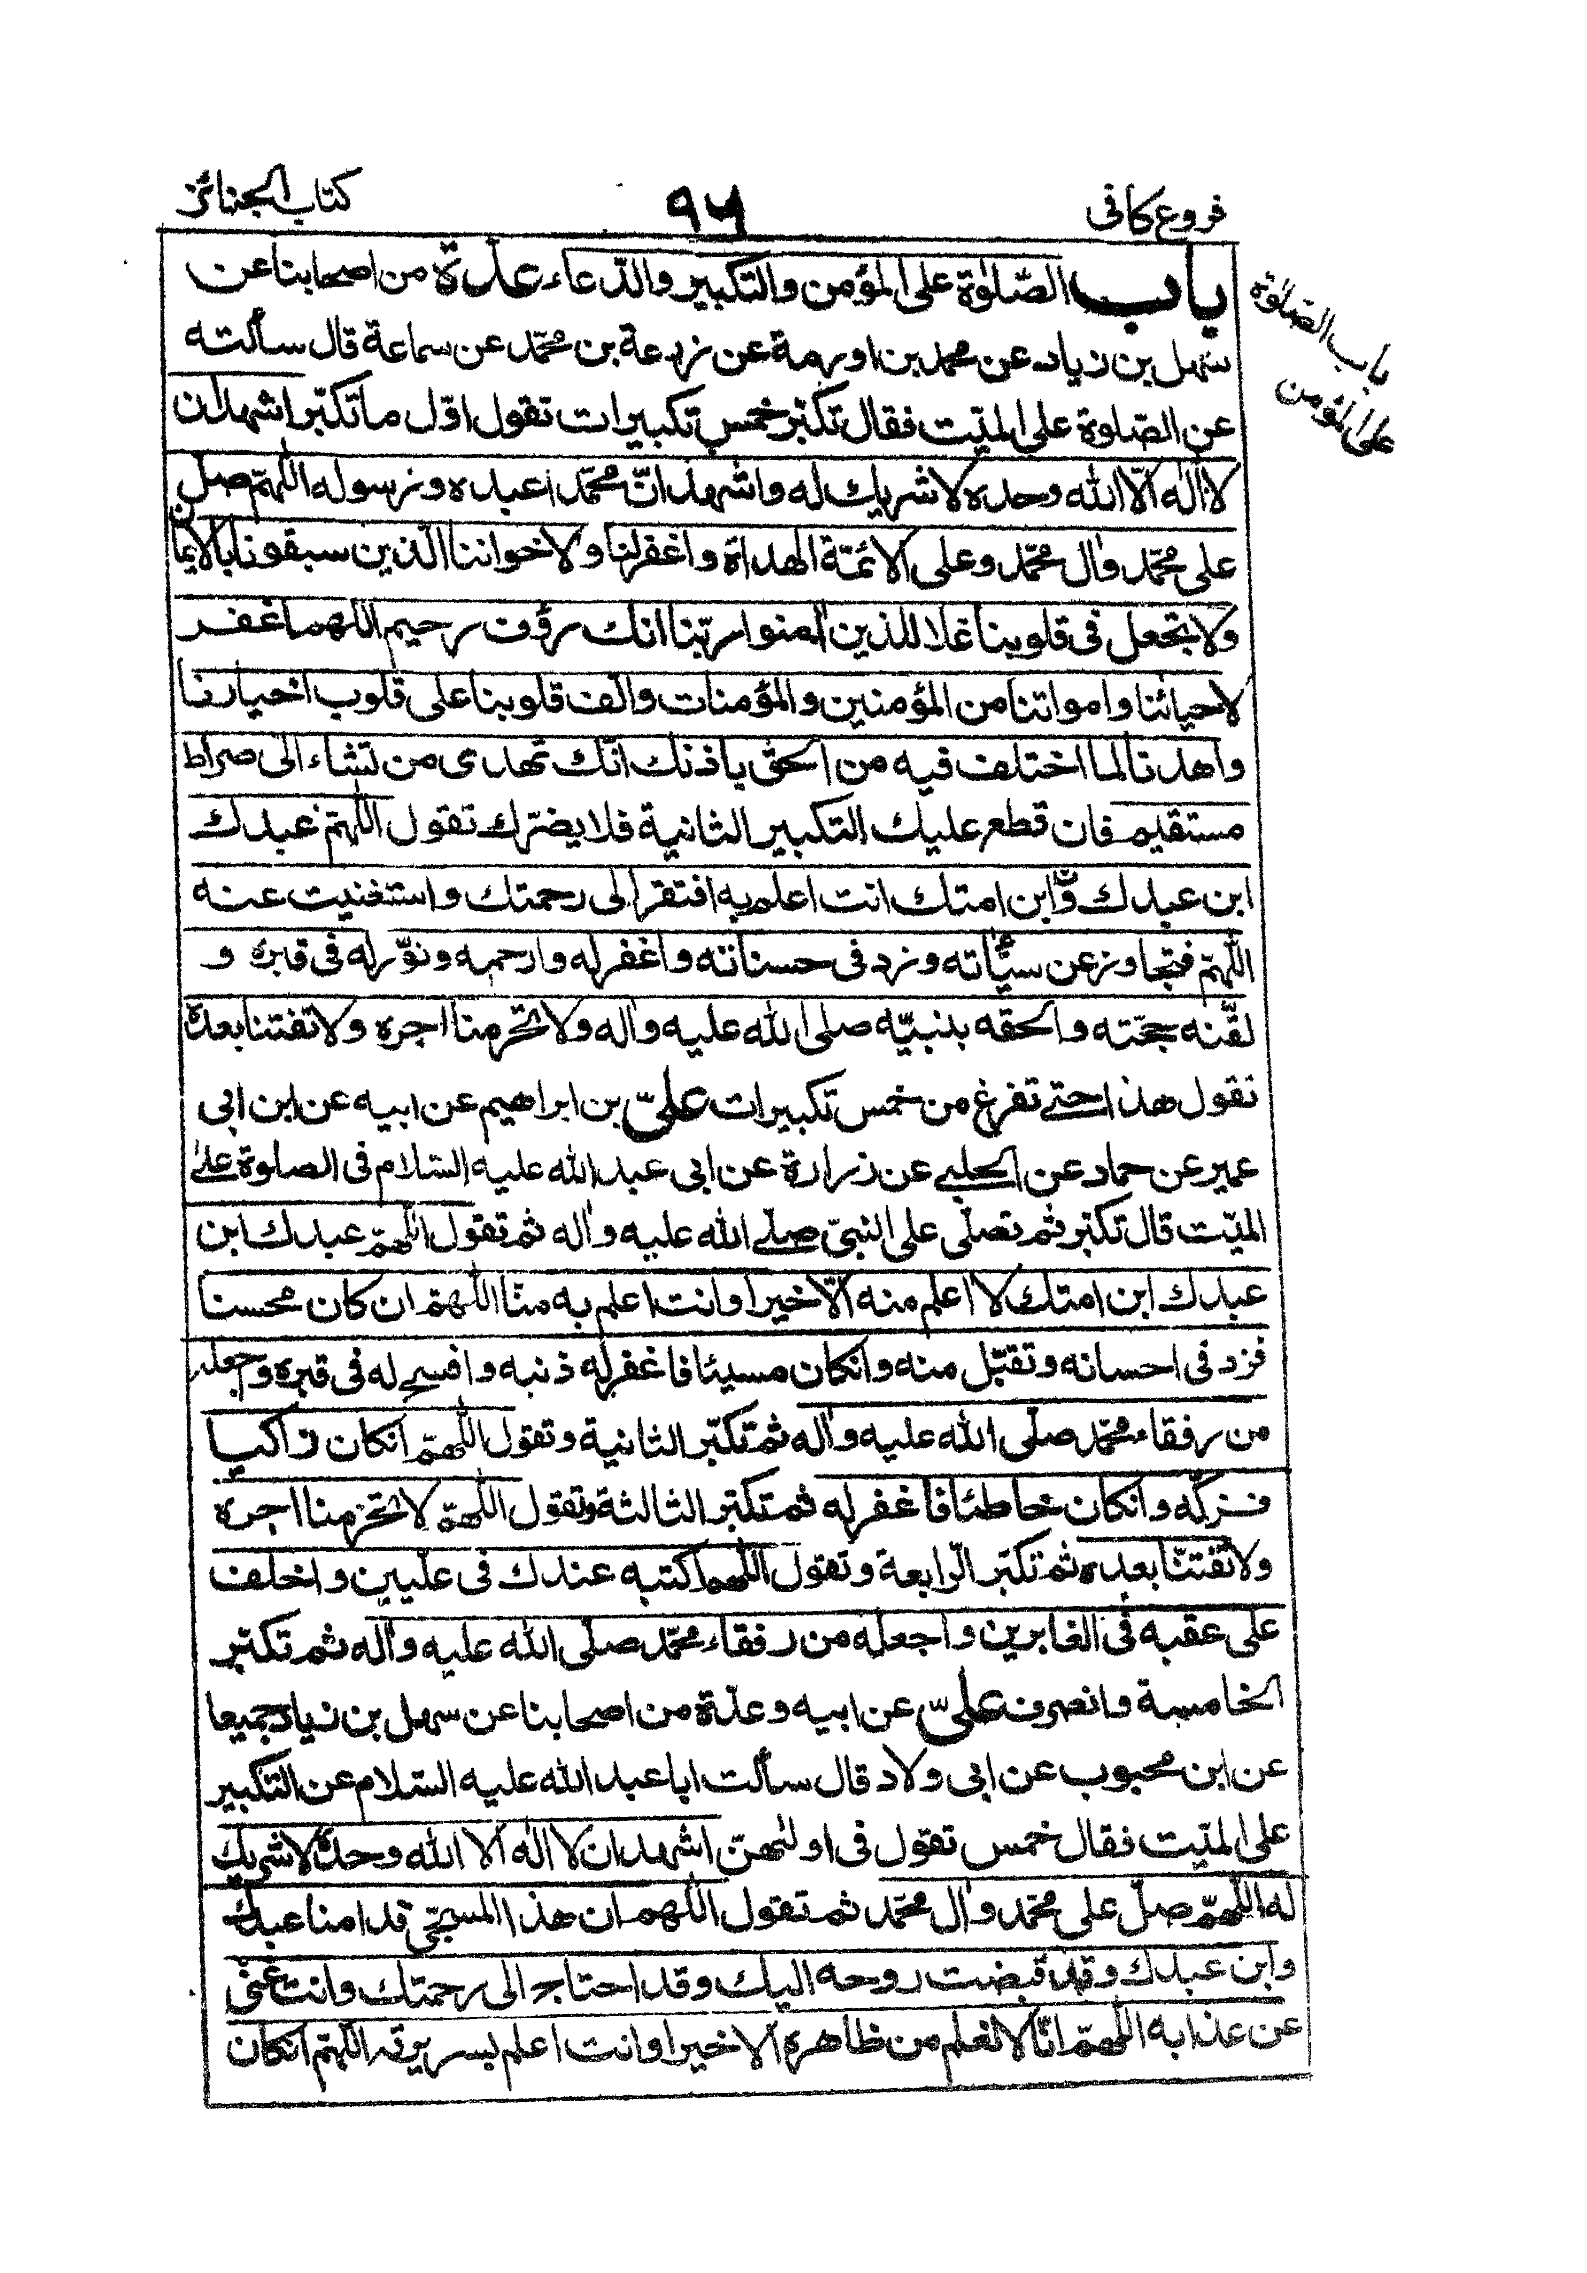 فروع كافى
٩٦
كتاب الجنائز
باب الصّلوٰة على المؤمن والتكبير والدّعاء عدّة من اصحابنا عن
سهل بن زياد عن محمد بن اورمة عن زرعة بن محمّد عن سماعة قال سألته
عن الصّلوة على الميّت فقال تكبّر خمس تكبيرات تقول اوّل ما تكبّر اشهد ان
لا اله الّا الله وحده لا شريك له واشهد انّ محمّدا عبده ورسوله اللّهمّ صلّ
على محمّد واٰل محمّد وعلى الائمّة الهداة واغفر لنا ولاخواننا الّذين سبقونا بالايمان
ولا تجعل فى قلوبنا غلا للذين اٰمنوا ربّنا انك رؤف رحيم اللّهم اغفر
لاحيائنا وامواتنا من المؤمنين والمؤمنات والّف قلوبنا على قلوب اخيارنا
واهدنا لما اختلف فيه من الحقّ باذنك انّك تهدى من تشاء الى صراط
مستقيم فان قطع عليك التكبير الثانية فلا يضرّك تقول اللّهمّ عبدك
ابن عبدك وابن امتك انت اعلم به افتقر الى رحمتك واستغنيت عنه
اللّهمّ فتجاوز عن سيّاٰته وزد فى حسناته واغفر له وارحمه ونوّر له فى قبره و
لقّنه حجّته والحقه بنبيّه صلى الله عليه واٰله ولا تحرمنا اجره ولا تفتنا بعده
تقول هذا حتى تفرغ من خمس تكبيرات علىّ بن ابراهيم عن ابيه عن ابن ابى
عمير عن حماد عن الحلبى عن زرارة عن ابى عبد الله عليه السّلام فى الصلوة على
الميّت قال تكبّر ثم تصلّى على النبىّ صلّى الله عليه واٰله ثم تقول اللّهمّ عبدك ابن
عبدك ابن امتك لا اعلم منه الّا خيرا وانت اعلم به منّا اللّهمّ ان كان محسنا
فزد فى احسانه وتقبّل منه وانكان مسيئا فاغفر له ذنبه وافسح له فى قبره واجعله
من رفقاء محمّد صلّى الله عليه واٰله ثمّ تكبّر الثانية وتقول اللّهمّ انكان زاكيا
فزكّه وانكان خاطئا فاغفر له ثم تكبّر الثالثة وتقول اللّهمّ لا تحرمنا اجره
ولا تفتنّا بعده ثم تكبّر الرّابعة وتقول اللّهم اكتبه عندك فى علّيين واخلف
على عقبه فى الغابرين واجعله من رفقاء محمّد صلّى الله عليه واٰله ثم تكبّر
الخامسة وانصرف علىّ عن ابيه وعدّة من اصحابنا عن سهل بن زياد جميعا
عن ابن محبوب عن ابى ولاد قال سألت ابا عبد الله عليه السّلام عن التكبير
على الميّت فقال خمس تقول فى اولٰهنّ اشهد ان لا اله الا الله وحده لا شريك
له اللّهمّ صلّ على محمّد واٰل محمّد ثم تقول اللّهم ان هذا المسجّى قدامنا عبدك
وابن عبدك وقد قبضت روحه اليك وقد احتاج الى رحمتك وانت غنى
عن عذابه اللّهمّ انّا لا نعلم من ظاهره الا خيرا وانت اعلم بسريرته اللّهمّ انكان
باب الصّلوٰة
على المؤمن